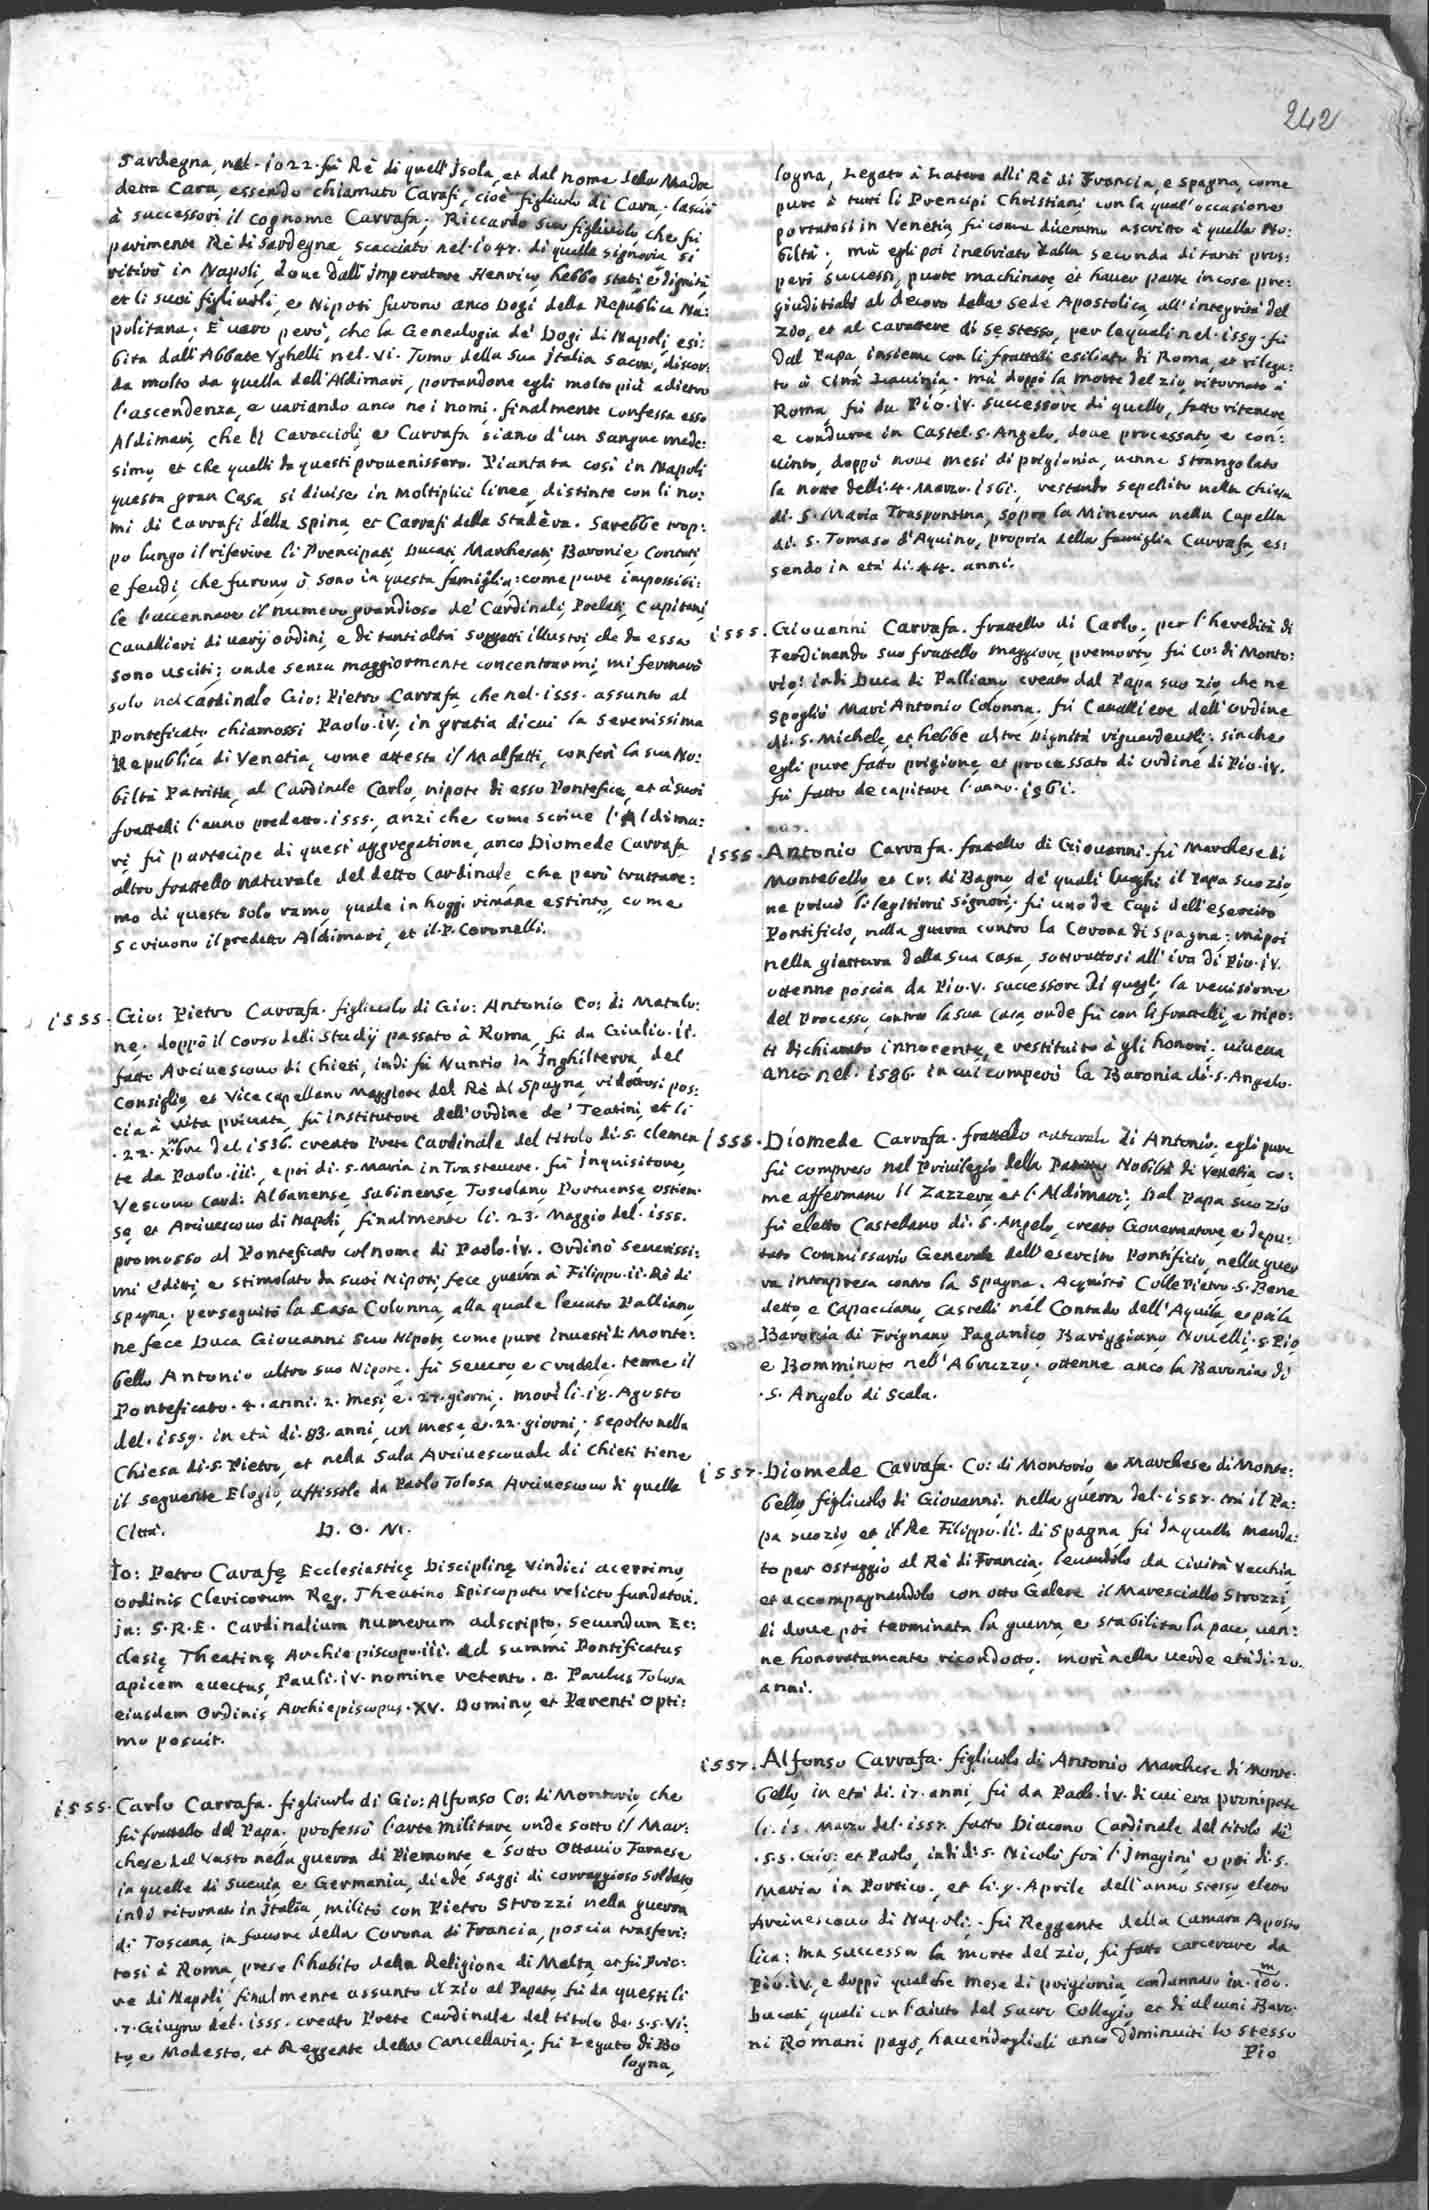 242
Sardegna, nel 1022. fù Rè di quell'Isola, et dal nome della Madre
detta Cara, essendo chiamato Carafi, cioè figliuolo di Cara, lasciò
à successori il cognome Carrafa. Riccardo suo figliuolo, che fù
parimente Rè di Sardegna, scacciato nel 1047. di quella signoria si
ritirò in Napoli, doue dall'Imperatore Henrico hebbe stati, e dignità
et li suoi figliuoli, e Nipoti furono anco Dogi della Republica Na:
politana; È uero però, che la Genealogia de' Dogi di Napoli esi:
bita dall'Abbate Vghelli nel VI. Tomo della sua Italia sacra, discor:
da molto da quella dell'Aldimari, portandone egli molto più adietro
l'ascendenza, e uariando anco ne i nomi. finalmente confessa esso
Aldimari, che li Caraccioli, e Carrafa siano d'un sangue mede:
simo, et che quelli da questi prouenissero. Piantata così in Napoli
questa gran Casa, si diuise in moltiplici linee, distinte con li no:
mi di Carrafi della Spina, et Carrafi della Stadera. Sarebbe trop:
po lungo il riferire li Prencipati, Ducati, Marchesati, Baronie, Contati,
e feudi, che furono, ò sono in questa famiglia: come pure impossibi:
le l'accennare il numero grandioso de' Cardinali, Prelati, Capitani
Cauallieri di uarij ordini, e di tanti altri soggetti illustri, che da essa
sono usciti; onde senza maggiormente concentrarmi, mi fermarò
solo nel Cardinale Gio: Pietro Carrafa, che nel 1555. assunto al
Ponteficato, chiamossi Paolo IV. in gratia di cui la Serenissima
Republica di Venetia, come attesta il Malfatti, conferì la sua No:
biltà Patritia, al Cardinale Carlo, nipote di esso Pontefice, et à suoi
frattelli l'anno predetto 1555., anzi che come scriue l'Aldima:
ri fù partecipe di quest'aggregatione, anco Diomede Carrafa
altro frattello naturale del detto Cardinale, che però trattare:
mo di questo solo ramo, quale in hoggi rimane estinto, come
scriuono il predetto Aldimari, et il P. Coronelli.
1555. Gio: Pietro Carrafa. figliuolo di Gio: Antonio Co: di Matalo:
ne. doppò il corso delli Studij passato à Roma, fù da Giulio II.
fatto Arciuescouo di Chieti, indi fù Nuntio in Inghilterra, del
Consiglio, et Vicecapellano Maggiore del Rè di Spagna, ridottosi pos:
cia à uita priuata, fù institutore dell'ordine de' Teatini, et li
22. Xbre del 1536. creato Prete Cardinale del titolo di S. Clemen
te da Paolo III., e poi di S. Maria in Trasteuere. fù Inquisitore,
Vescouo Card: Albanense, Sabinense, Toscolano, Portuense, Ostien:
se, et Arciuescouo di Napoli, finalmente li 23. Maggio del 1555.
promosso al Ponteficato col nome di Paolo IV. Ordinò seuerissi:
mi editti, e stimolato da suoi Nipoti, fece guerra à Filippo II. Rè di
Spagna. perseguitò la Casa Colonna, alla quale leuato Palliano,
ne fece Duca Giouanni suo Nipote, come pure inuestì di Monte:
bello Antonio altro suo Nipote. fù seuero, e crudele. tenne il
Ponteficato 4. anni. 2. mesi, e 27. giorni. morì li 18. Agosto
del 1559. in età di 83. anni, un mese, e 22. giorni. sepolto nella
Chiesa di S. Pietro, et nella Sala Arciuescouale di Chieti tiene
il seguente Elogio, affissole da Paolo Tolosa Arciuescouo di quella
Città. D. O. M.
Io: Petro Carafę Ecclesiasticę Disciplinę Vindici acerrimo
ordinis Clericorum Reg. Theatino Episcopatu relicto fundatori.
in: S. R. E. Cardinalium numerum adscripto, secundum Ec:
clesię Theatinę Archiepiscopo III. ad summi Pontificatus
apicem euectus, Pauli IV. nomine retento. Paulus Tolosa
eiusdem Ordinis Archiepiscopus XV. Domino, et Parenti opti:
mo posuit.
1555. Carlo Carrafa. figliuolo di Gio: Alfonso Co: di Montorio, che
fù frattello del Papa. professò l'arte militare, onde sotto il Mar:
chese del Vasto nella guerra di Piemonte, e sotto Ottauio Farnese
in quelle di Sueuia, e Germania, diede saggi di corraggioso soldato
indi ritornato in Italia, militò con Pietro Strozzi nella guerra
di Toscana, in fauore della Corona di Francia, poscia trasferi:
tosi à Roma, prese l'habito della Religione di Malta, et fù Prio:
re di Napoli, finalmente assunto il zio al Papato, fù da questi li
7. Giugno del 1555. creato Prete Cardinale del titolo de S.S. Vi:
to, e Modesto, et Reggente della Cancellaria. fù Legato di Bo
logna,
logna, Legato à Latere alli Rè di Francia, e Spagna, come
pure à tutti li Prencipi Christiani con la qual'occasione
portatosi in Venetia, fù come diceremo ascritto à quella No:
biltà. mà egli poi inebriato dalla seconda di tanti pros:
peri successi, puote machinare, et hauer parte in cose pre:
giuditiali al decoro della Sede Apostolica, all'integrità del
zio, et al carattere di se stesso, per le quali nel 1559. fù
dal Papa, insieme con li frattelli esiliato di Roma, et rilega:
to à Cività Lauinia. mà doppò la morte del zio, ritornato à
Roma, fù da Pio IV. successore di quello, fatto ritenere,
e condurre in Castel S. Angelo, doue processato, e con:
uinto, doppò noue mesi di prigionia, uenne strangolato
la notte delli 4. Marzo 1561., restando sepellito nella chiesa
di S. Maria Traspontina, sopra la Minerua nella Capella
di S. Tomaso d'Aquino, propria della famiglia Carrafa, es:
sendo in età di 44. anni.
1555. Giouanni Carrafa. frattello di Carlo, per l'heredità di
Ferdinando suo frattello maggiore, premorto, fù Co: di Monto:
rio: indi Duca di Palliano, creato dal Papa suo zio che ne
spogliò Marc'Antonio Colonna. fù Caualliere dell'ordine
di S. Michele, et hebbe altre Dignità riguardeuoli: sinche
egli pure fatto prigione, et processato di ordine di Pio IV.
fù fatto decapitare l'anno 1561.
1555. Antonio Carrafa. frattello di Giouanni. fù Marchese di
Montebello, et Co: di Bagno, de' quali luoghi il Papa suo zio
ne priuò li legitimi Signori. fù uno de Capi dell'esercito
Pontificio, nella guerra contro la Corona di Spagna: mà poi
nella giattura della sua Casa, sottrattosi all'ira di Pio IV.
ottenne poscia da Pio V. successore di quegli la reuisione
del Processo contro la sua Casa, onde fù con li frattelli, e nipo:
ti dichiarato innocente, e restituito à gli honori. uiueua
anco nel 1586. in cui comperò la Baronia di S. Angelo.
1555. Diomede Carrafa. frattello naturale di Antonio. egli pure
fù compreso nel Priuilegio della Patritia Nobiltà di Venetia, co:
me affermano il Zazzera, et l'Aldimari. Dal Papa suo zio
fù eletto Castellano di S. Angelo, creato Gouernatore, e depu:
tato Commissario Generale dell'esercito Pontificio, nella guer
ra intrapresa contro la Spagna. Acquistò Colle Pietro, S. Bene
detto, e Capocciano, Castelli nel Contado dell'Aquila, e poi la
Baronia di Frignano, Paganico, Bariggiano, Nouelli, S. Pio
e Bomminoto nell'Abruzzo. ottenne anco la Baronia di
S. Angelo di Scala.
1557. Diomede Carrafa. Co: di Montorio, e Marchese di Monte:
bello, figliuolo di Giouanni. nella guerra del 1557. trà il Pa:
pa suo zio, et il Re Filippo II. di Spagna fù da quelli manda:
to per ostaggio al Rè di Francia, leuandolo da Ciuità Vecchia
et accompagnandolo con otto Galere il Maresciallo Strozzi,
di doue poi terminata la guerra, e stabilita la pace, uen:
ne honoratamente ricondotto. morì nella uerde età di 20.
anni.
1557. Alfonso Carrafa. figliuolo di Antonio Marchese di Monte:
bello, in età di 17. anni, fù da Paolo IV. di cui era pronipote
li 15. Marzo del 1557. fatto Diacono Cardinale del titolo di
S.S. Gio: et Paolo, indi di S. Nicolò frà l'Imagini e poi di S.
Maria in Portico, et li 9. Aprile dell'anno stesso eletto
Arciuescouo di Napoli. fù Reggente della Camara Aposto
lica: ma successa la morte del zio, fù fatto carcerare da
Pio IV. e doppò qualche mese di prigionia, condannato in 100.m
Ducati, quali con l'aiuto del Sacro Collegio, et di alcuni Baro:
ni Romani pagò, hauendoglieli anco diminuiti lo stesso
Pio